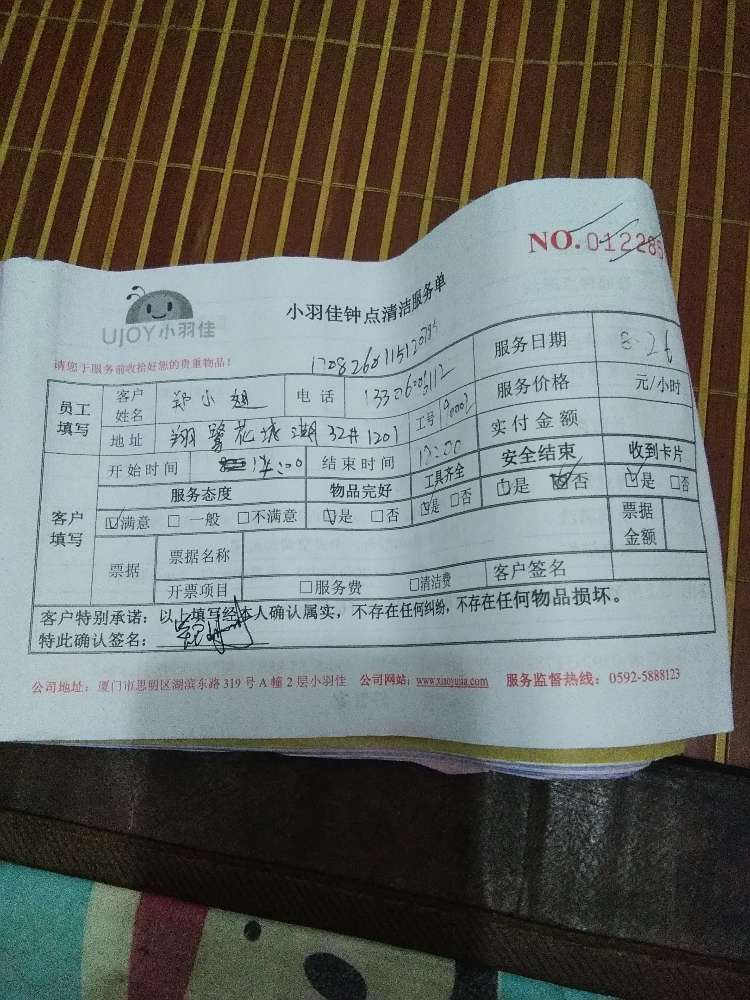 NO.012285
UJOY小羽佳
小羽佳钟点清洁服务单
请您于服务前收拾好您的贵重物品！
服务日期 8.26
员工填写 客户姓名 郑小姐 电话 服务价格 元/小时
地址 翔鹭花城 32# 1201 工号 实付金额
开始时间 14:00 结束时间 17:00 安全结束 收到卡片
客户填写 服务态度 物品完好 工具齐全 ☑是 □否 ☑是 □否
☑满意 □一般 □不满意 ☑是 □否 ☑是 □否 票据金额
票据 票据名称
开票项目 □服务费 □清洁费 客户签名
客户特别承诺：以上填写经本人确认属实，不存在任何纠纷，不存在任何物品损坏。
特此确认签名：
公司地址：厦门市思明区湖滨东路319号A幢2层小羽佳 公司网站：www.xiaoyujia.com 服务监督热线：0592-5888123